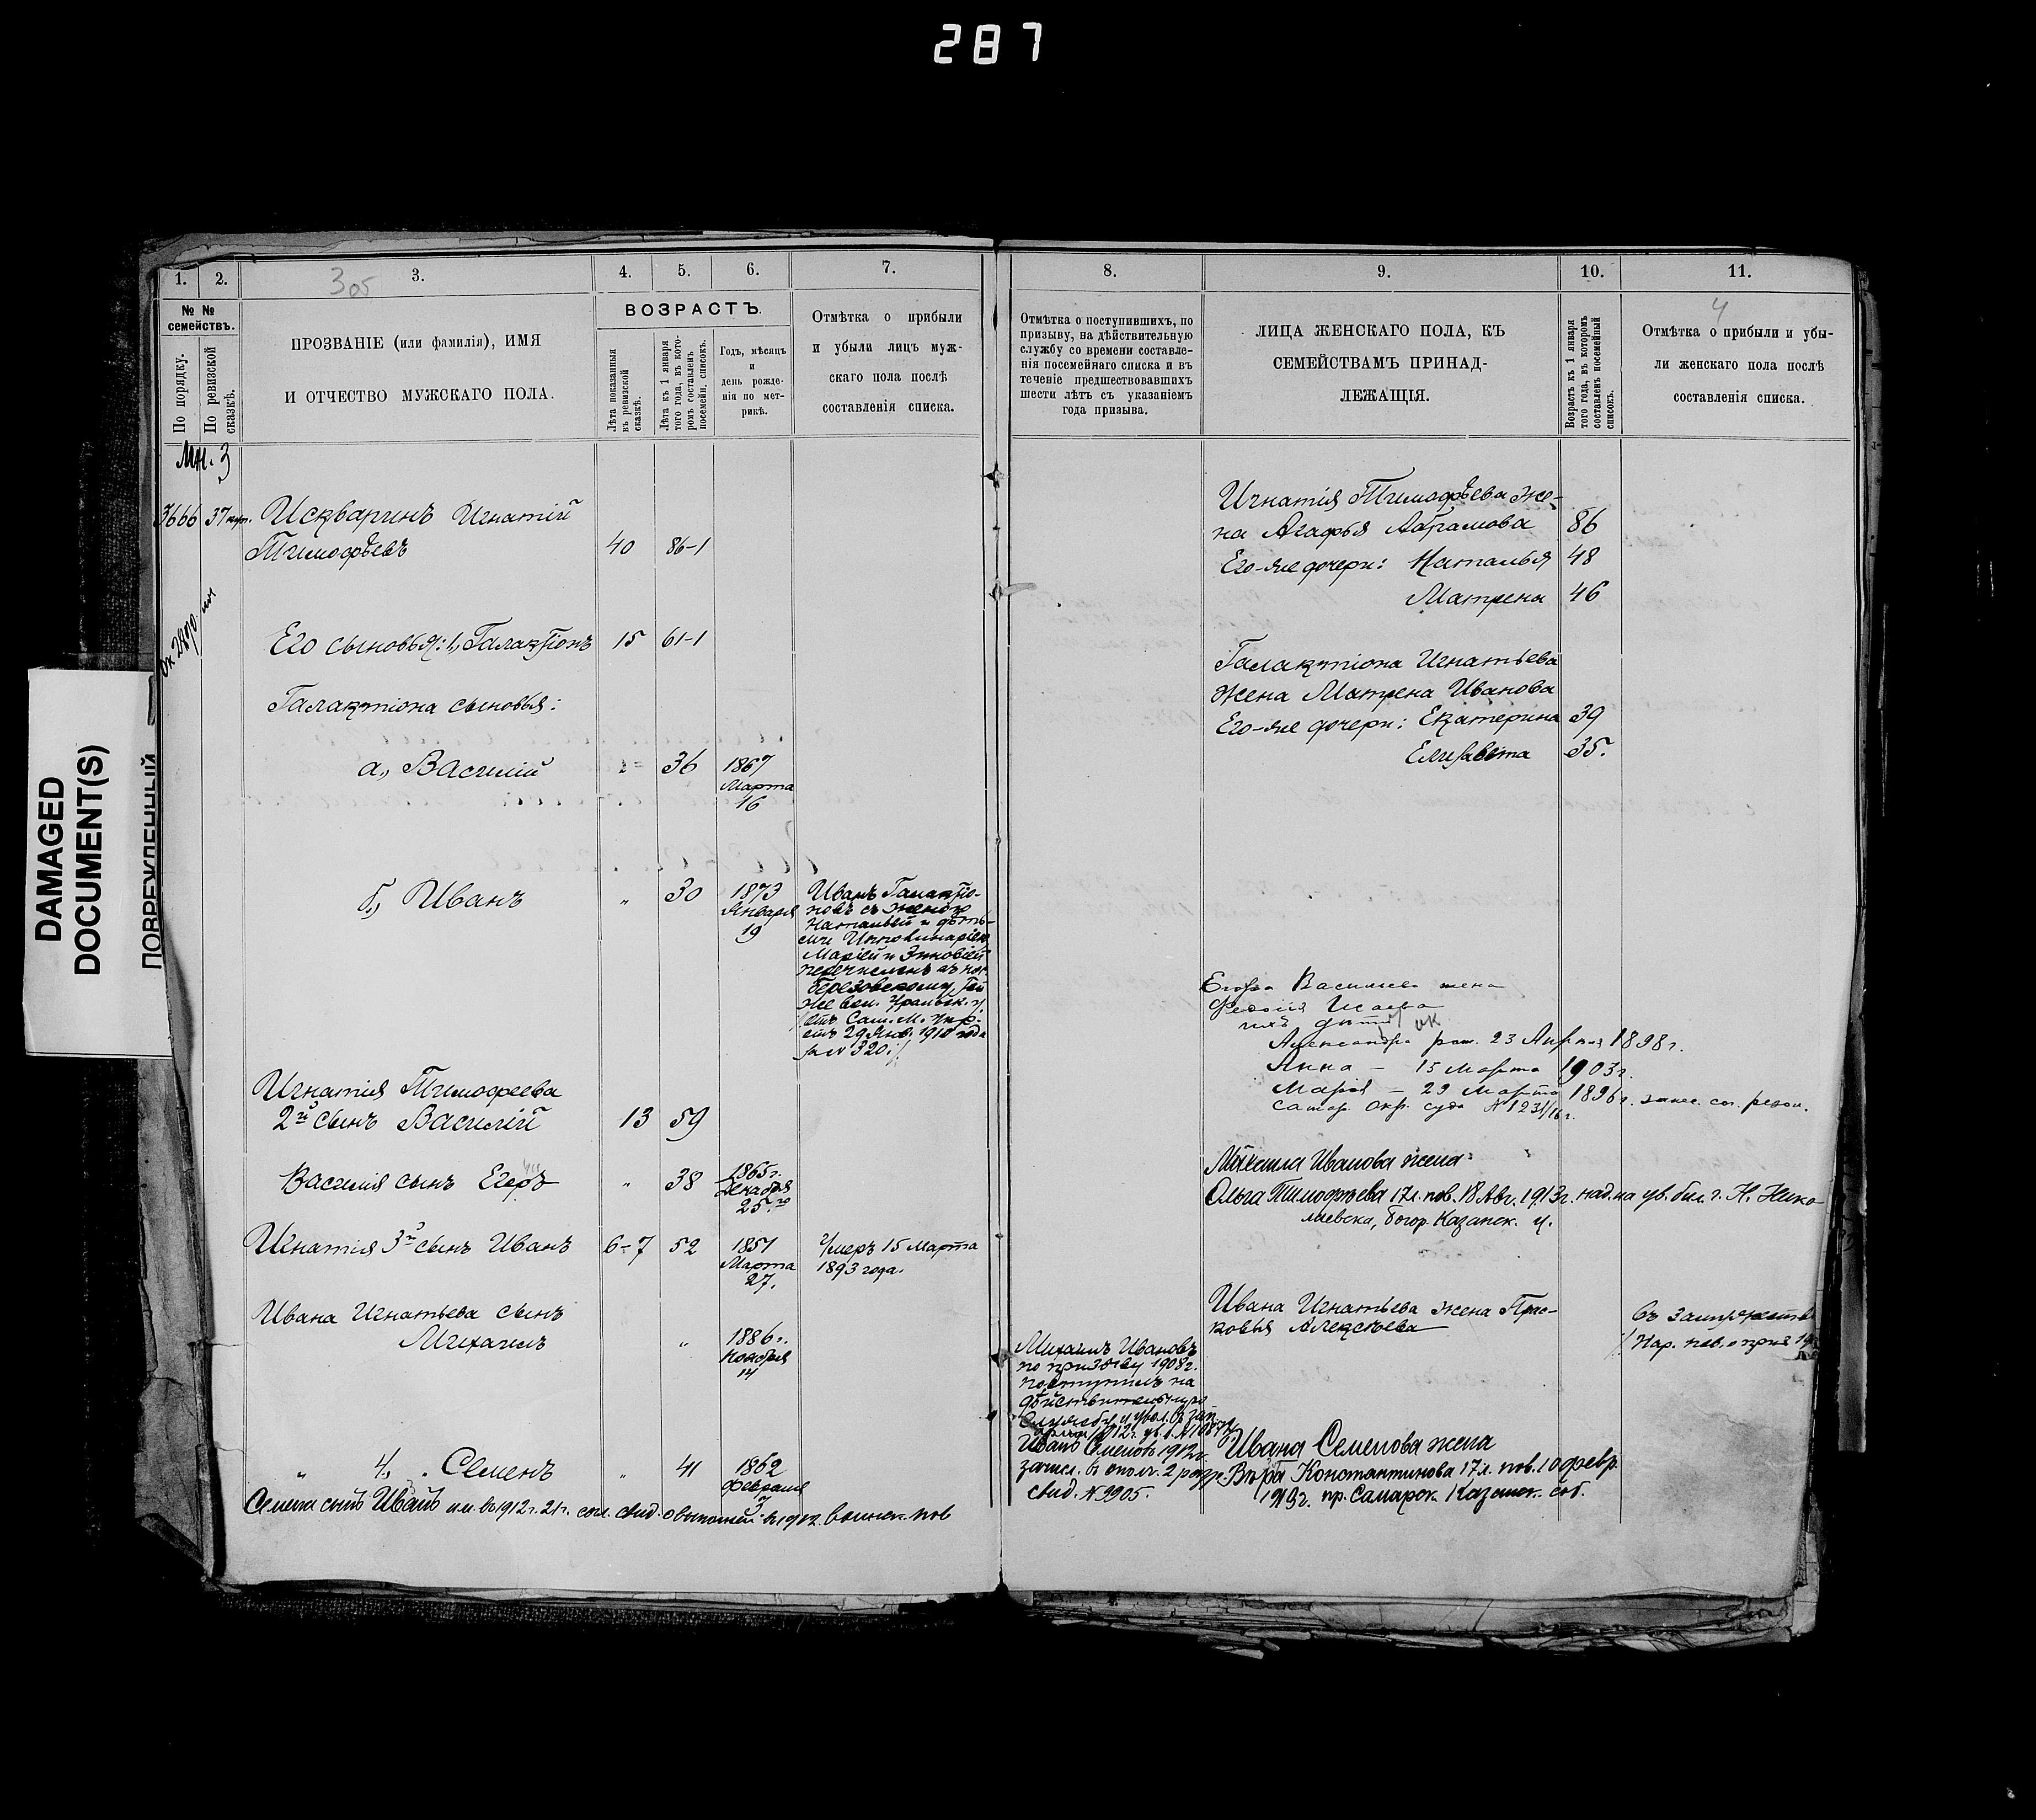 287
DAMAGED
DOCUMENT(S)
ПОВРЕЖДЕННЫЙ
1. 2. 3. 4. 5. 6. 7.
305
№ №
семействъ.
По порядку.
По ревизской
сказкѣ.
ПРОЗВАНІЕ (или фамилія), ИМЯ
И ОТЧЕСТВО МУЖСКАГО ПОЛА.
ВОЗРАСТЪ.
Лѣта показанныя
въ ревизской
сказкѣ.
Лѣта къ 1 января
того года, въ кото-
ромъ составленъ
посемейн. списокъ.
Годъ, мѣсяцъ
и
день рожде-
нія по мет-
рикѣ.
Отмѣтка о прибыли
и убыли лицъ муж-
скаго пола послѣ
составленія списка.
3666 37 Искваринъ Игнатій
Тимофѣевъ 40 86-1
Его сыновья: 1, Галактіонъ 15 61-1
Галактіона сыновья:
а, Василій 36 1867
Марта
16
б, Иванъ „ 30 1873
Января
19
Иванъ Галактіо-
новъ съ женою
Натальей и дѣть-
ми
Маріей и Зиновіей
перечисленъ къ
Березовскому
же вол.
29 Янв. 1910 года
за № 320.
Игнатія Тимофеева
2й сынъ Василій 13 59
Василія сынъ Егоръ „ 38 1865 г.
Декабря
25.го
Игнатія 3й сынъ Иванъ 6-7 52 1851
Марта
27.
Умеръ 15 Марта
1893 года.
Ивана Игнатьева сынъ
Михаилъ „ 1886 г.
Ноября
14
„ 4, Семенъ „ 41 1862
Февраля
3
Семена сынъ Иванъ въ 1912 г. 21 г. свид. въ 1912 воинск. пов
8. 9. 10. 11.
Отмѣтка о поступившихъ, по
призыву, на дѣйствительную
службу со времени составле-
нія посемейнаго списка и въ
теченіе предшествовавшихъ
шести лѣтъ съ указаніемъ
года призыва.
ЛИЦА ЖЕНСКАГО ПОЛА, КЪ
СЕМЕЙСТВАМЪ ПРИНАД-
ЛЕЖАЩІЯ.
Возрастъ къ 1 января
того года, въ которомъ
составленъ посемейный
списокъ.
4
Отмѣтка о прибыли и убы-
ли женскаго пола послѣ
составленія списка.
Игнатія Тимофѣева же-
на Агафья Абрамова 86
Его-же дочери: Наталья 48
Матрена 46
Галактіона Игнатьева
жена Матрена Иванова
Его-же дочери: Екатерина 39
Елисавета 35.
Егора Васильева жена
Исаева
ихъ дѣти
Александра рож. 23 Апрѣля 1898 г.
Анна — 15 Марта 1903 г.
Марія — 29 Марта 1896 г.
Самар. Окр. суда
Михаила Иванова жена
Ольга Тимофѣева 17 л. пов. 18 Авг. 1913 г. г. Н. Нико-
лаевска, Богор. Казанск. ц.
Ивана Игнатьева жена Прас-
ковья Алексѣева
въ замужество
Михаилъ Ивановъ
по призыву 1908 г.
поступилъ на
дѣйствительную
службу
Иванъ Семеновъ 1912 г.
зачисл. в ополч. 2 разр.
свид. № 9905.
Ивана Семенова жена
Вѣра Константинова 17 л. пов. 10 февр.
1913 г. пр. Самарск. Казанск. соб.